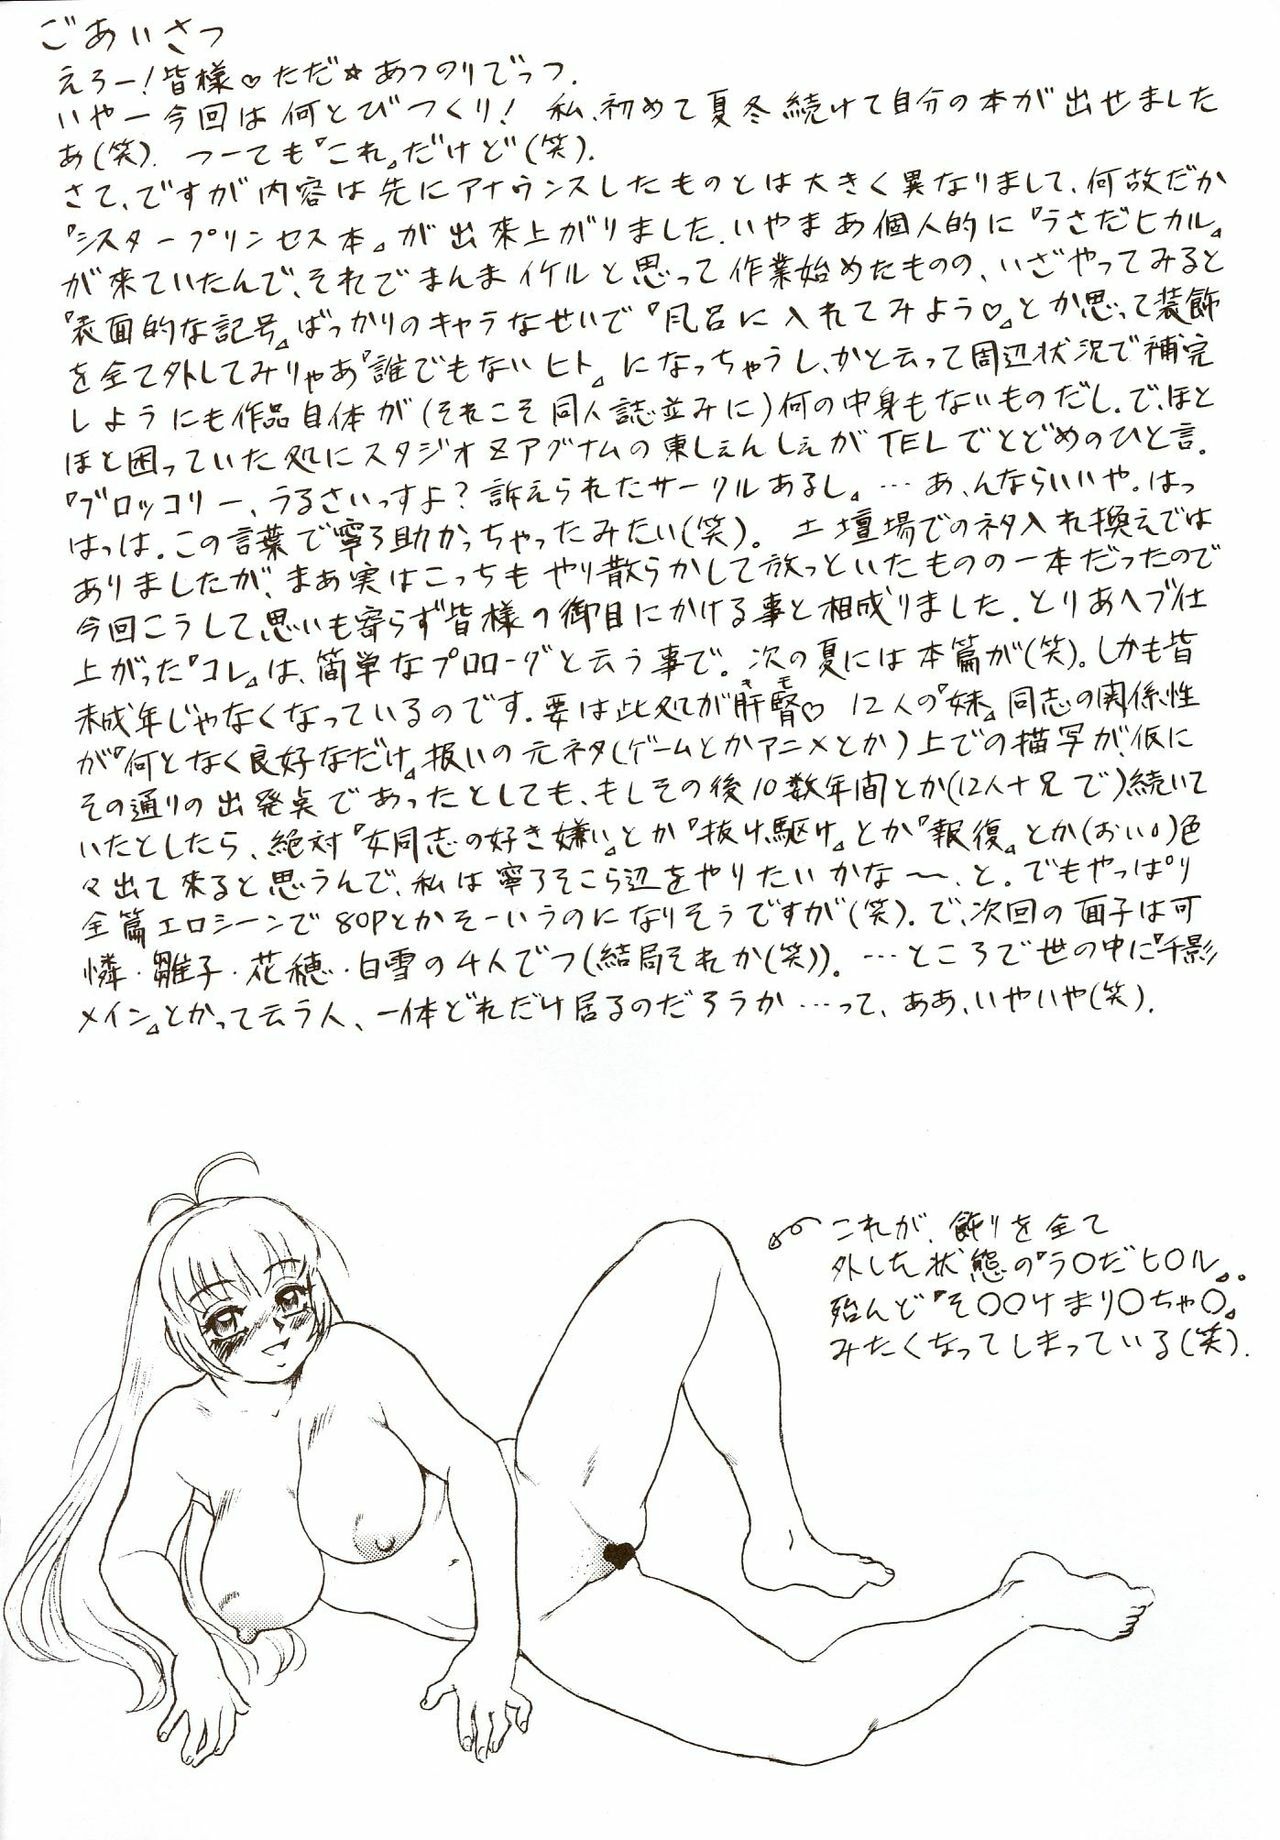 ごあいさつ
えろー！皆様♡ただ☆あつのりでっつ．
いやー今回は何とびつくり！ 私、初めて夏冬続けて自分の本が出せました
あ(笑)． つーても『これ』だけど(笑)．
さて、ですが内容は先にアナウンスしたものとは大きく異なりまして、何故だか
『シスタープリンセス本』が出来上がりました．いやまあ個人的に『うさだヒカル』
が来ていたんで、それでまんまイケルと思って作業始めたものの、いざやってみると
『表面的な記号』ばっかりのキャラなせいで『風呂に入れてみよう♡』とか思って装飾
を全て外してみりゃあ『誰でもないヒト』になっちゃうし、かと云って周辺状況で補完
しようにも作品自体が(それこそ同人誌並みに)何の中身もないものだし．で、ほと
ほと困っていた処にスタジオZアグナムの東しぇんしぇがTELでとどめのひと言．
『ブロッコリー、うるさいっすよ？訴えられたサークルあるし』…あ、んならいいや。はっ
はっは．この言葉で寧ろ助かっちゃったみたい(笑)．土壇場でのネタ入れ換えでは
ありましたが、まあ実はこっちもやり散らかして放っといたものの一本だったので
今回こうして思いも寄らず皆様の御目にかける事と相成りました．とりあへブ仕
上がった『コレ』は、簡単なプロローグと云う事で。次の夏には本篇が(笑)。しかも皆
未成年じゃなくなっているのです．要は此処が肝腎♡ 12人の『妹』同志の関係性
が『何となく良好なだけ』扱いの元ネタ(ゲームとかアニメとか)上での描写が、仮に
その通りの出発点であったとしても、もしその後10数年間とか(12人＋兄で)続いて
いたとしたら、絶対『女同志の好き嫌い』とか『抜け駆け』とか『報復』とか(おい)色
々出て来ると思うんで、私は寧ろそこら辺をやりたいかな〜、と。でもやっぱり
全篇エロシーンで80Pとかそーいうのになりそうですが(笑)．で、次回の面子は可
憐・雛子・花穂・白雪の4人でつ(結局それか(笑))．…ところで世の中に『千影
メイン』とかって云う人、一体どれだけ居るのだろうか…って、ああ、いやいや(笑)．
これが、飾りを全て
外した状態の『う○だヒ○ル』。
殆んど『そ○○けまり○ちゃ○』
みたくなってしまっている(笑)．